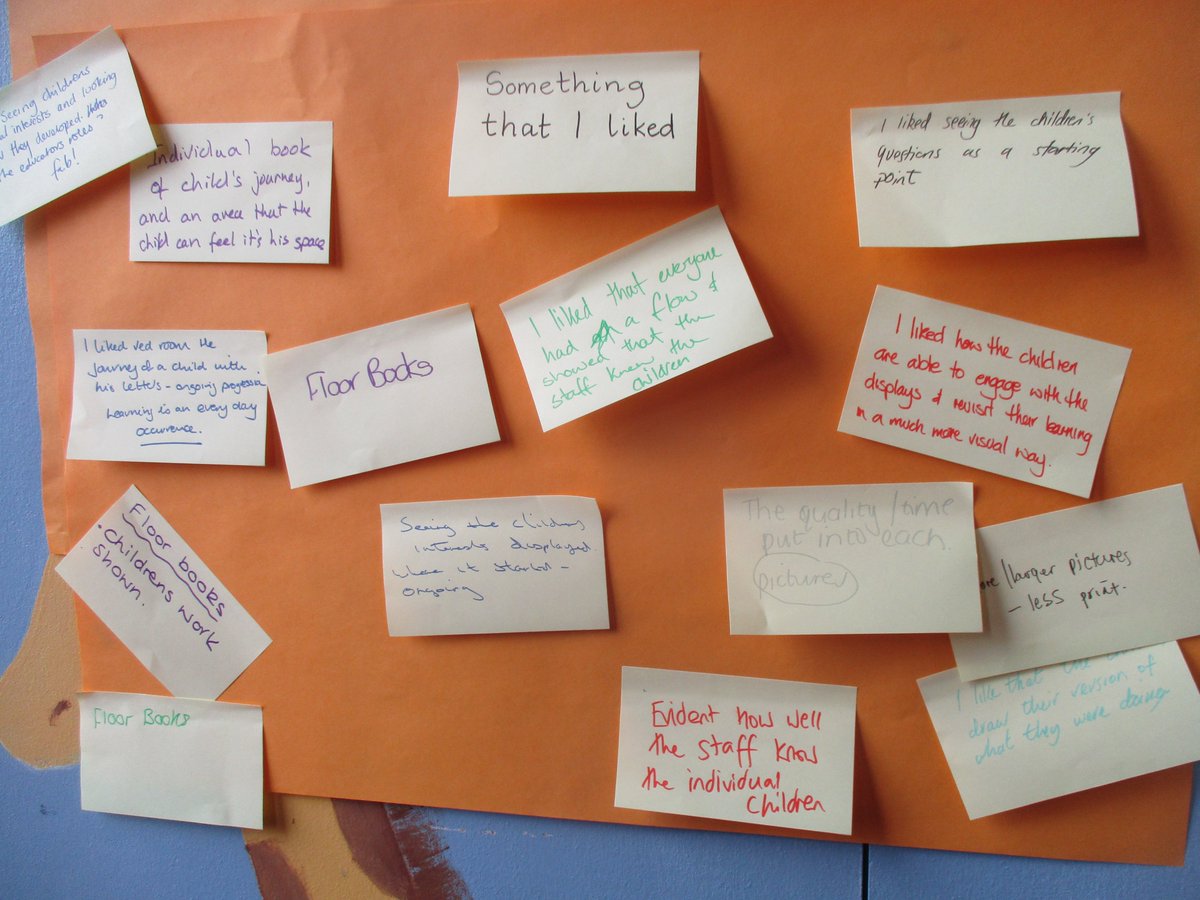 Something
that I liked
Seeing childrens
interests and looking
they developed.
the educators notes?
fab!
Individual book
of child's journey,
and an area that the
child can feel it's his space
I liked seeing the children's
questions as a starting
point
I liked that everyone
had a flow &
showed that the
staff knew the
children
I liked red room the
journey of a child with
his letters - ongoing progression
Learning is an every day
occurrence.
Floor Books
I liked how the children
are able to engage with the
displays & revisit their learning
in a much more visual way.
Floor books
· Childrens work
shown.
Seeing the childrens
interests displayed
where it started -
ongoing
The quality/time
put into each.
pictures
/larger pictures
- less print.
I like that the
draw their version of
what they were doing
Floor Books
Evident how well
the staff know
the individual
Children